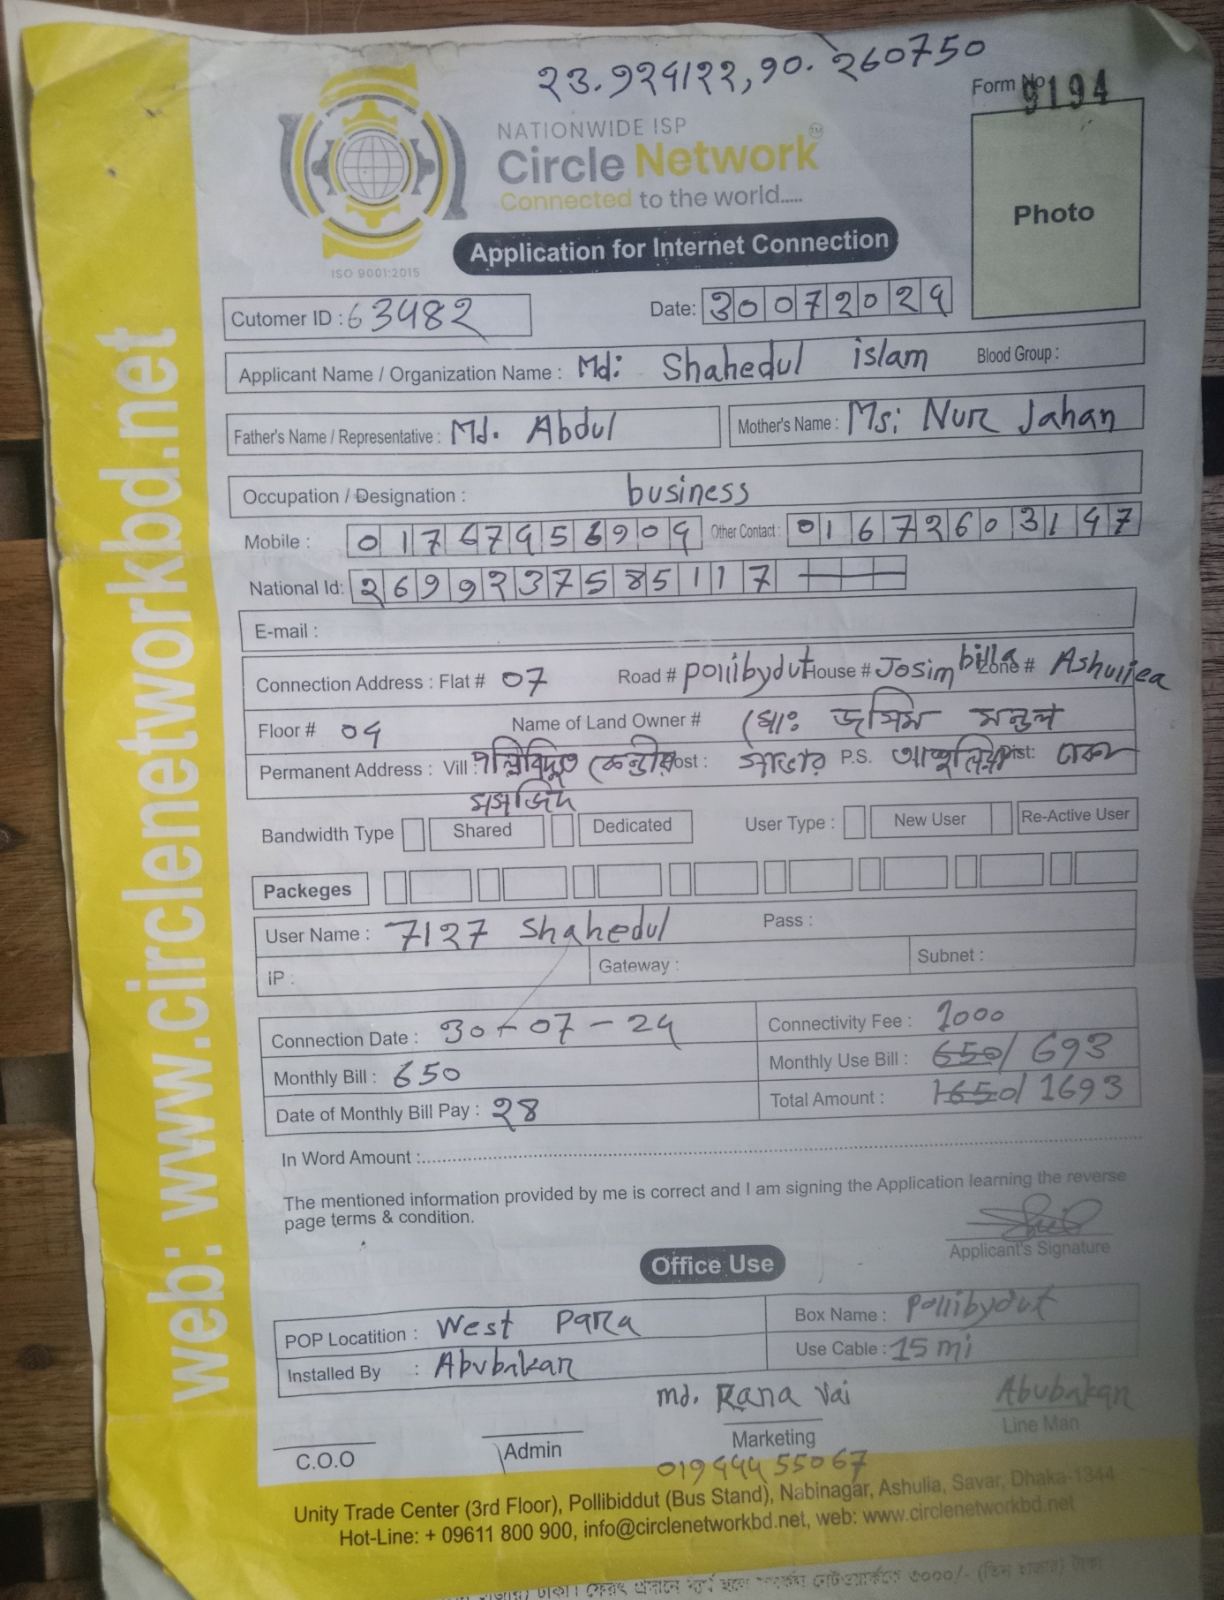 23.924122, 90.260750
Form No 9194
NATIONWIDE ISP
Circle Network TM
Connected to the world.....
ISO 9001:2015
Photo
Application for Internet Connection
Cutomer ID : 63482 Date: 30072024
Applicant Name / Organization Name : Md: Shahedul islam Blood Group :
Father's Name / Representative : Md. Abdul Mother's Name : Ms: Nur Jahan
Occupation / Designation : business
Mobile : 01767956904 Other Contact : 01672603147
National Id: 2699237585117
E-mail :
Connection Address : Flat # 07 Road # pollibydut House # Josim billa Zone # Ashuliea
Floor # 04 Name of Land Owner # মোঃ জসিম মন্ডল
Permanent Address : Vill : পল্লিবিদ্যুত কেন্দ্রীয় Post : সাভার P.S. আশুলিয়া Dist: ঢাকা
মসজিদ
Bandwidth Type Shared Dedicated User Type : New User Re-Active User
Packeges
User Name : 7127 Shahedul Pass :
IP : Gateway : Subnet :
Connection Date : 30-07-24 Connectivity Fee : 1000
Monthly Bill : 650 Monthly Use Bill : 650/ 693
Date of Monthly Bill Pay : 28 Total Amount : 1650/ 1693
In Word Amount :
The mentioned information provided by me is correct and I am signing the Application learning the reverse
page terms & condition.
Applicant's Signature
Office Use
POP Locatition : West Para Box Name : pollibydut
Installed By : Abubakar Use Cable : 15 mi
md. Rana Vai Abubakar
C.O.O Admin Marketing Line Man
01944455067
Unity Trade Center (3rd Floor), Pollibiddut (Bus Stand), Nabinagar, Ashulia, Savar, Dhaka-1344
Hot-Line: + 09611 800 900, info@circlenetworkbd.net, web: www.circlenetworkbd.net
web: www.circlenetworkbd.net